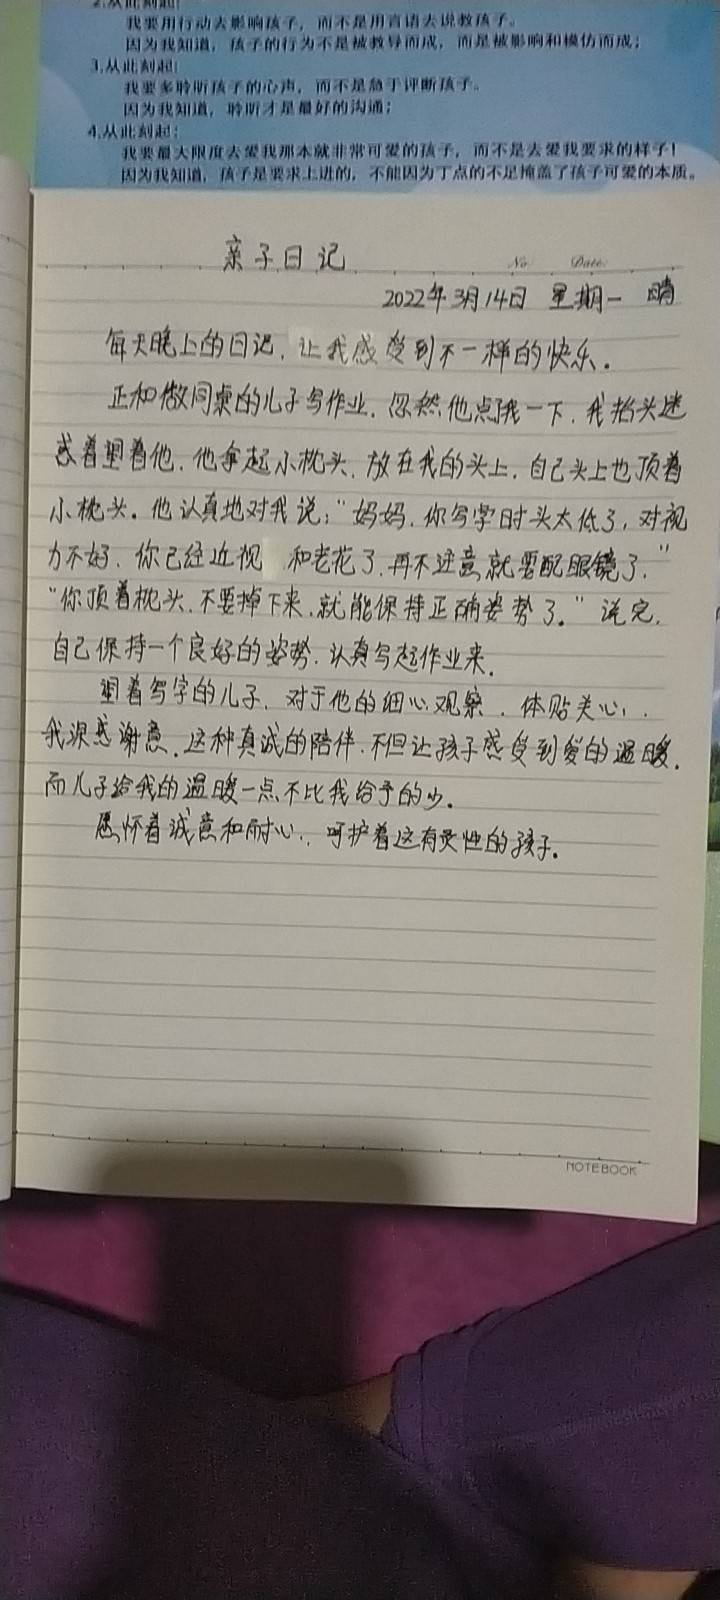 2.从此刻起:
我要用行动去影响孩子，而不是用言语去说教孩子。
因为我知道，孩子的行为不是被教导而成，而是被影响和模仿而成；
3.从此刻起:
我要多聆听孩子的心声，而不是急于评断孩子。
因为我知道，聆听才是最好的沟通；
4.从此刻起；
我要最大限度去爱我那本就非常可爱的孩子，而不是去爱我要求的样子！
因为我知道，孩子是要求上进的，不能因为丁点的不足掩盖了孩子可爱的本质。
亲子日记
No Date:
2022年3月14日 星期一 晴
每天晚上的日记，让我感受到不一样的快乐。
正和做同桌的儿子写作业，忽然他点我一下，我抬头迷
惑着望着他，他拿起小枕头，放在我的头上，自己头上也顶着
小枕头。他认真地对我说："妈妈，你写字时头太低了，对视
力不好，你已经近视 和老花了，再不注意就要配眼镜了，"
"你顶着枕头，不要掉下来，就能保持正确姿势了。"说完，
自己保持一个良好的姿势，认真写起作业来。
望着写字的儿子，对于他的细心观察，体贴关心，
我深感谢意，这种真诚的陪伴，不但让孩子感受到爱的温暖，
而儿子给我的温暖一点不比我给予的少。
愿怀着诚意和耐心，呵护着这有灵性的孩子。
NOTEBOOK